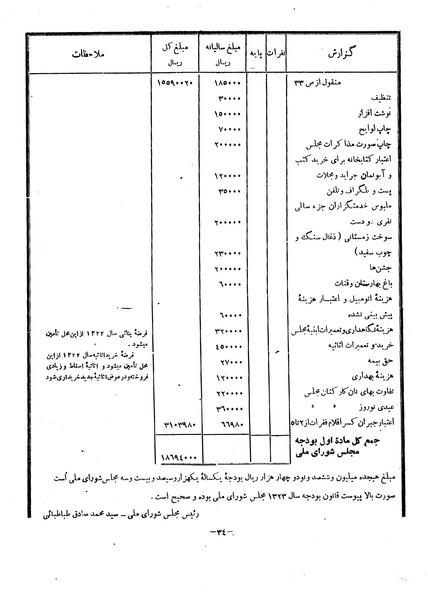 گزارش نفرات پایه مبلغ سالیانه ریال مبلغ کل ریال ملاحظات
منقول از ص ۳۳ ۱۸۵۰۰۰ ۱۵۵۹۰۰۲۰
تنظیف ۳۰۰۰۰
نوشت افزار ۱۵۰۰۰۰
چاپ لوایح ۷۰۰۰۰
چاپ صورت مذاکرات مجلس ۲۰۰۰۰۰
اعتبار کتابخانه برای خرید کتب
و آبونمان جراید ومجلات ۱۲۰۰۰۰
پست و تلگراف وتلفن ۳۵۰۰۰
ملبوس خدمتگزاران جزء سالی
نفری دودست ۲۰۰۰۰۰
سوخت زمستانی ( ذغال سنگ و
چوب سفید ) ۲۳۰۰۰۰
جشن‌ها ۲۰۰۰۰۰
باغ بهارستان وقنات ۶۰۰۰۰
هزینهٔ اتومبیل و اعتبار هزینهٔ
پیش بینی نشده ۶۰۰۰۰
هزینهٔ نگاهداری وتعمیرات ابنیهٔ مجلس ۳۲۰۰۰۰ قرضهٔ بنائی سال ۱۳۲۲ از این محل تأمین
میشود .
خرید و تعمیرات اثاثیه ۴۵۰۰۰۰ قرضهٔ خرید اثاثیه سال ۱۳۲۲ از این
حق بیمه ۲۷۰۰۰ محل تأمین میشود و اثاثیهٔ اسقاط و زیادی
هزینهٔ بهداری ۱۲۰۰۰۰ فروخته و در عوض اثاثیهٔ جدید خریداری شود
تفاوت بهای نان کارکنان مجلس ۲۲۰۰۰۰
عیدی نوروز » » ۳۶۰۰۰۰
اعتبار جبران کسر اقلام فقرات از ۲ تا ۵ ۶۶۹۸۰ ۳۱۰۳۹۸۰
جمع کل مادهٔ اول بودجه
مجلس شورای ملی ۱۸۶۹۴۰۰۰
مبلغ هیجده میلیون وششصد ونودو چهار هزار ریال بودجهٔ یکسالهٔ یکهزاروسیصد وبیست وسه مجلس شورای ملی است
صورت بالا پیوست قانون بودجه سال ۱۳۲۳ مجلس شورای ملی بوده و صحیح است .
رئیس مجلس شورای ملی – سید محمد صادق طباطبائی
–۳۴–